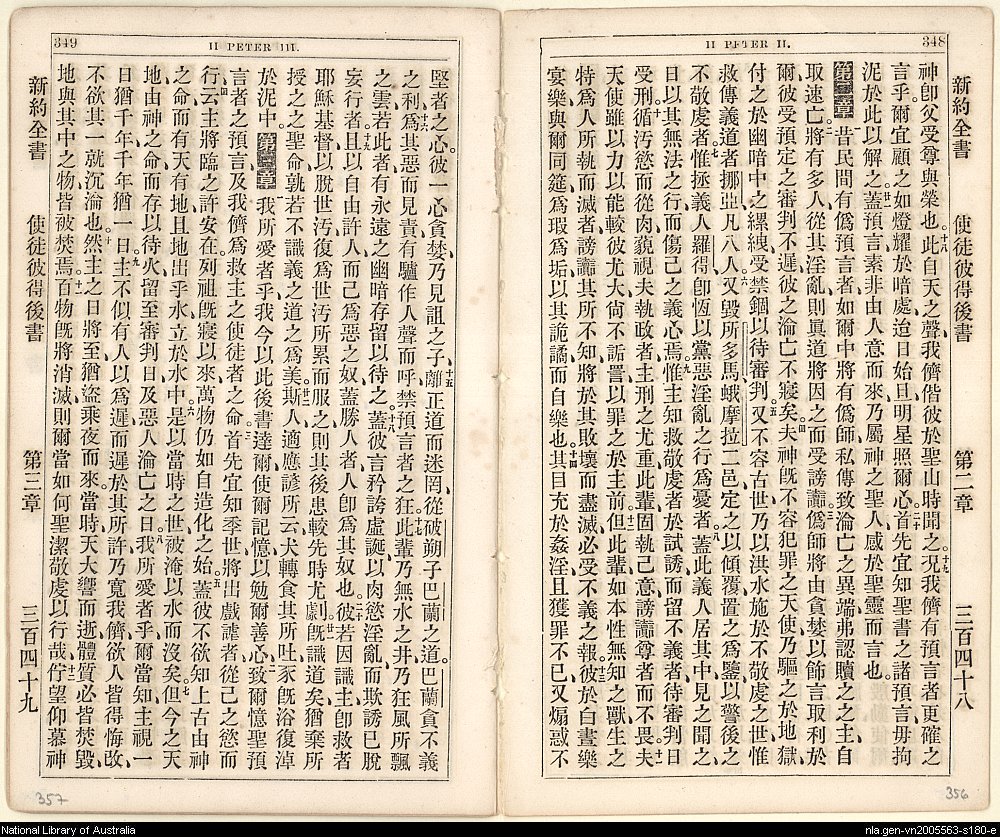 348
II PETER II.
新約全書 使徒彼得後書 第二章 三百四十八
神卽父受尊與榮也。此自天之聲、我儕偕彼於聖山時聞之、況我儕有預言者更確之
言乎、爾宜顧之、如燈耀於暗處、迨日始旦、明星照爾心、首先宜知聖書之諸預言、毋拘
泥於此以解之、蓋預言素非由人意而來、乃屬神之聖人感於聖靈而言也。
第二章 昔民間有僞預言者、如爾中將有僞師、私傳致淪亡之異端、弗認贖之之主、自
取速亡、將有多人從其淫亂、則眞道將因之而受謗讟、僞師將由貪婪以飾言取利於
爾、彼受預定之審判不遲、彼之淪亡不寢矣。夫神旣不容犯罪之天使、乃驅之於地獄、
付之於幽暗中之縲絏、受禁錮以待審判、又不容古世、乃以洪水施於不敬虔之世、惟
救傳義道者挪亞凡八人、又毀所多馬蛾摩拉二邑、定之以傾覆、置之爲鑒、以警後之
不敬虔者、惟拯義人羅得、卽恆以黨惡淫亂之行爲憂者、蓋此義人居其中、見之聞之、
日以其無法之行而傷己之義心焉。惟主知救敬虔者於試誘、而留不義者待審判日
受刑、循汚慾而從肉、藐視夫執政者、主刑之尤重、此輩固執己意、謗讟尊者而不畏、夫
天使雖以力以能較彼尤大、尙不詬詈以罪之於主前、但此輩如本性無知之獸、生之
特爲人所執而滅者、謗讟其所不知、將於其敗壞而盡滅、必受不義之報、彼於白晝樂
宴樂、與爾同筵、爲瑕爲垢、以其詭譎而自樂也。其目充於姦淫、且獲罪不已、又煽惑不
349
II PETER III.
堅者之心、彼一心貪婪、乃見詛之子、離正道而迷罔、從破朔子巴蘭之道、巴蘭貪不義
之利、爲其惡而見責、有驢作人聲而呼、禁預言者之狂、此輩乃無水之井、乃狂風所飄
之雲、若此者有永遠之幽暗存留以待之、蓋彼言矜誇虛誕、以肉慾淫亂、而欺誘已脫
妄行者、且以自由許人、而己爲惡之奴、蓋勝人者、人卽爲其奴也。彼若因識主卽救者
耶穌基督、以脫世汚、復爲世汚所累而服之、則其後患較先時尤劇、旣識道矣、猶棄所
授之之聖命、孰若不識義之道之爲美、斯人適應諺所云、犬轉食其所吐、豕旣浴復淖
於泥中。第三章 我所愛者乎、我今以此後書達爾、使爾記憶、以勉爾善心、致爾憶聖預
言者之預言、及我儕爲救主之使徒者之命、首先宜知季世將出戲謔者、從己之慾而
行、云、主將臨之許安在、列祖旣寢以來、萬物仍如自造化之始、蓋彼不欲知上古由神
之命而有天有地、且地出乎水、立於水中、是以當時之世被淹以水而沒矣。但今之天
地、由神之命而存、以待火、留至審判日、及惡人淪亡之日、我所愛者乎、爾當知主視一
日猶千年、千年猶一日、主不似有人以爲遲而遲於其所許、乃寬我儕、欲人皆得悔改、
不欲其一就沉淪也。然主之日將至、猶盜乘夜而來、當時天大響而逝、體質必皆焚毀、
地與其中之物皆被焚焉。百物旣將消滅、則爾當如何聖潔敬虔以行哉、佇望仰慕神
新約全書 使徒彼得後書 第三章 三百四十九
357
356
National Library of Australia
nla.gen-vn2005563-s180-e